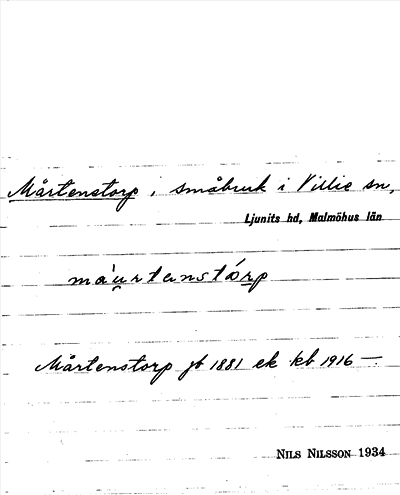 Mårtenstorp, småbruk i Villie sn,
Ljunits hd, Malmöhus län
mȧu̯rtenstórp
Mårtenstorp jb 1881 ek kb 1916 —
NILS NILSSON 1934